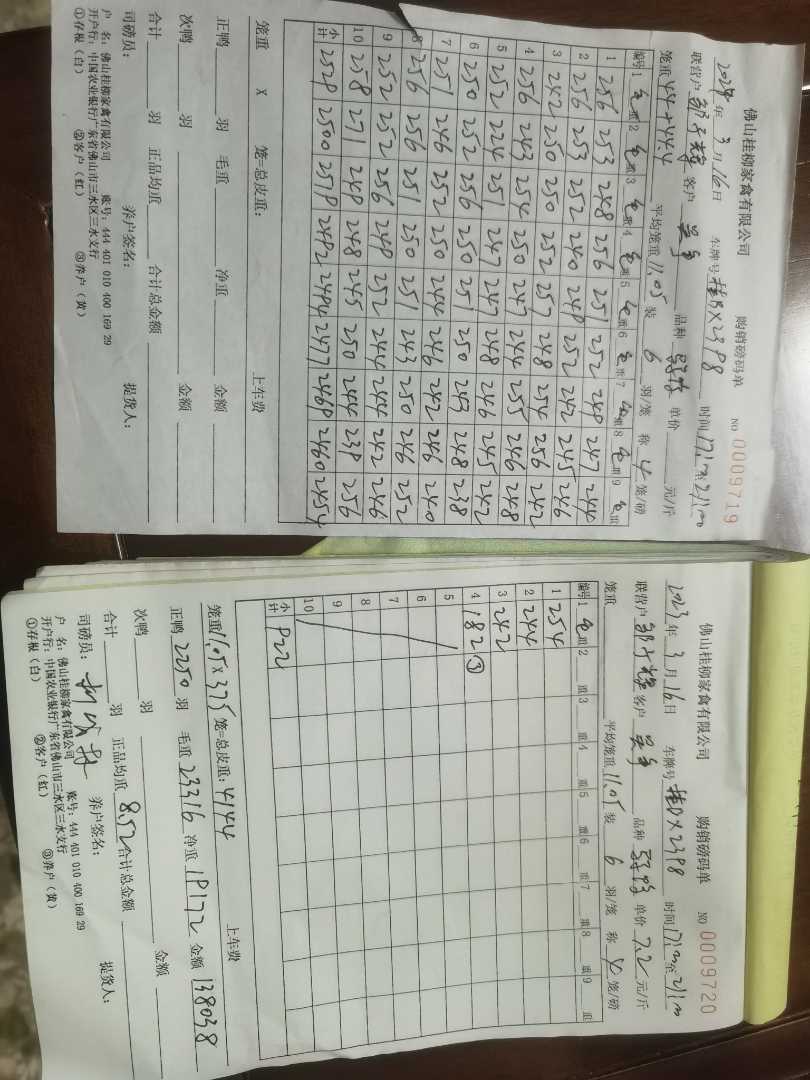 佛山桂柳家禽有限公司 购销磅码单 NO 0009719
2023年3月16日 车牌号桂DX2398 时间
联营户 客户 品种 单价 元/斤
笼重44+44.4 平均笼重11.05 装6羽/笼 称4笼/磅
编号 1 重 2 重 3 重 4 重 5 重 6 重 7 重 8 重 9 重
1 256 253 248 256 251 252 249 247 244
2 256 253 252 240 249 252 242 245 246
3 242 250 250 252 257 248 254 256 242
4 256 243 254 250 247 244 255 246 248
5 252 224 251 247 247 248 246 245 242
6 250 252 256 250 251 250 243 248 238
7 251 246 252 250 244 246 242 246 240
8 256 256 251 250 251 243 250 246 252
9 252 252 256 249 252 244 244 242 246
10 258 271 249 248 245 250 244 239 256
小计 2529 2500 2519 2492 2494 2477 2469 2460 2454
笼重 X 笼=总皮重: 上车费
正鸭 羽 毛重 净重 金额
次鸭 羽 金额
合计 羽 正品均重 合计总金额
司磅员: 养户签名: 提货人:
户 名: 佛山桂柳家禽有限公司 账号: 444 401 010 400 169 29
开户行: 中国农业银行广东省佛山市三水区三水支行
①存根（白） ②客户（红） ③养户（黄）
佛山桂柳家禽有限公司 购销磅码单 NO 0009720
2023年3月16日 车牌号桂DX2398 时间
联营户 客户 品种 单价7.2元/斤
笼重 平均笼重11.05 装6羽/笼 称4笼/磅
编号 1 重 2 重 3 重 4 重 5 重 6 重 7 重 8 重 9 重
1 254
2 244
3 242
4 182③
5
6
7
8
9
10
小计 922
笼重11.05X375笼=总皮重:4144 上车费
正鸭2250羽 毛重23316 净重19172 金额138038
次鸭 羽 金额
合计 羽 正品均重8.52 合计总金额
司磅员: 养户签名: 提货人:
户 名: 佛山桂柳家禽有限公司 账号: 444 401 010 400 169 29
开户行: 中国农业银行广东省佛山市三水区三水支行
①存根（白） ②客户（红） ③养户（黄）